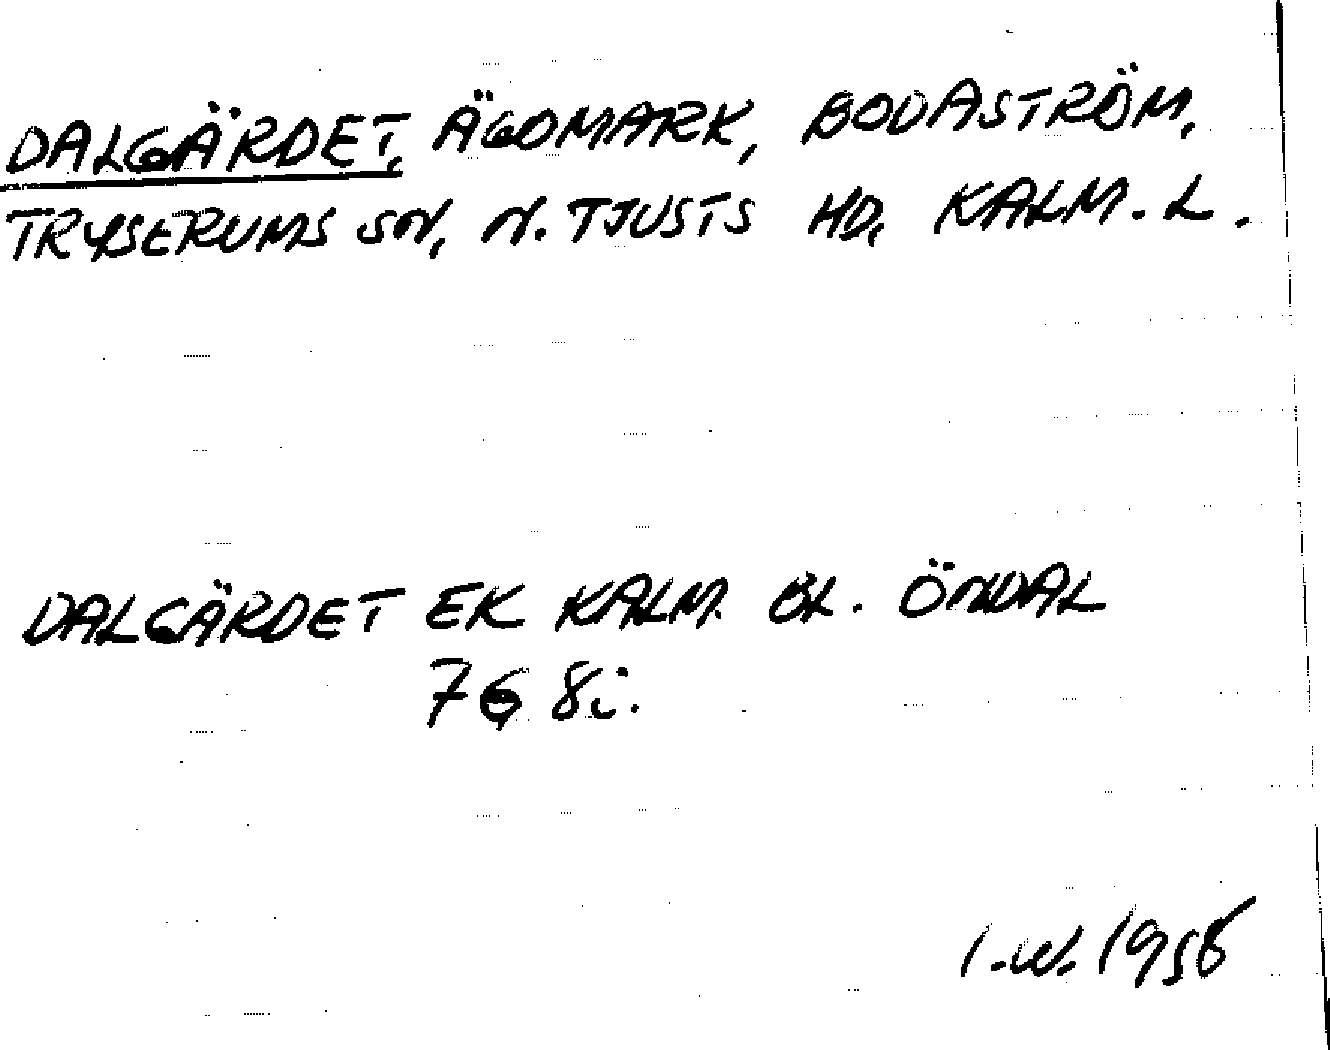 DALGÄRDET, ÄGOMARK, BODASTRÖM,
TRYSERUMS SN, N. TJUSTS HD, KALM. L.
DALGÄRDET EK KALM. BL. ÖNDAL
7G 8i.
I.W. 1958